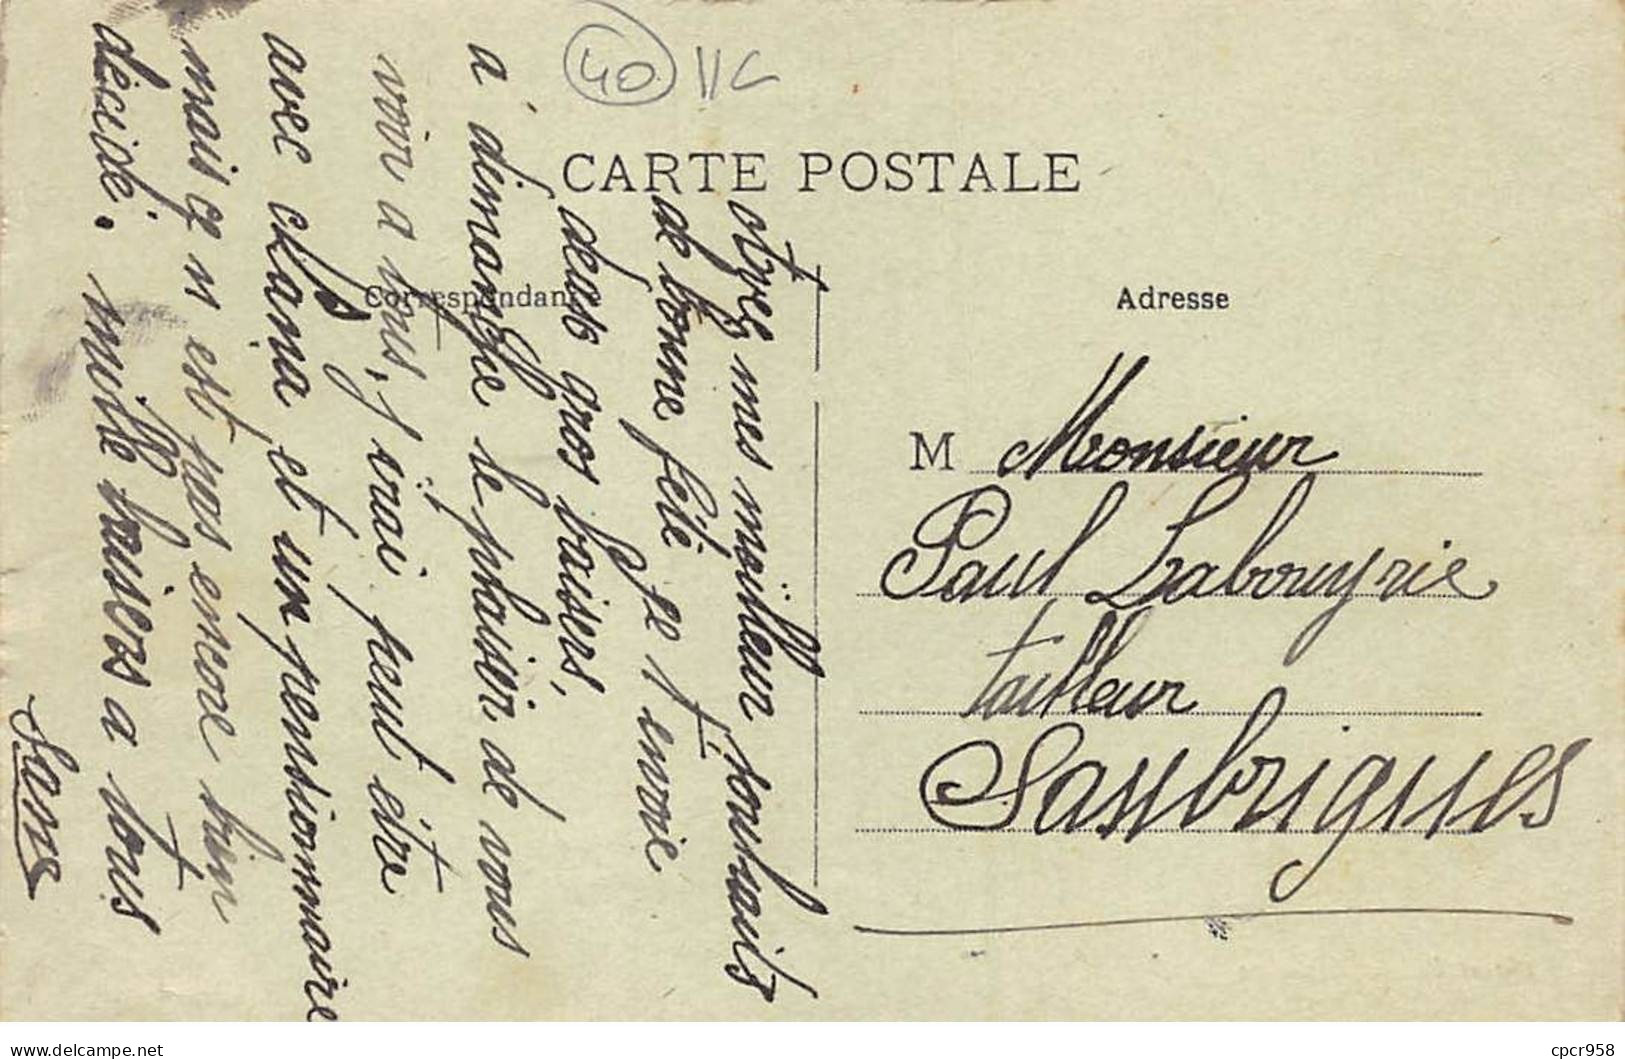 40 11C
CARTE POSTALE
Correspondan
Adresse
otre mes meilleur souhaits
de bonne fête je t'envoie
deux gros baisers,
a dimanche le plaisir de vous
voir a tous, j'irai peut etre
avec et un pensionnaire
mais ce n est pas encore bien
décidé. mille baisers a tous
M Monsieur
Paul Labouyrie
tailleur
Saubrigues
delcampe.net
cpcr958